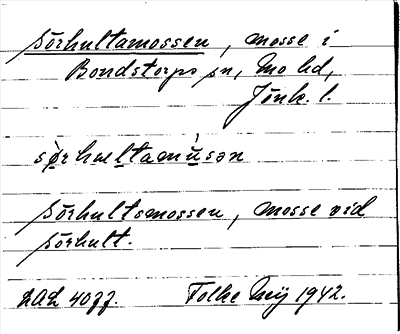 Sörhultamossen, mosse i
Bondstorps sn, Mo hd,
Jönk. l.
sørhultamùsən
Sörhultsmossen, mosse vid
Sörhult.
ZAL 4077. Folke Meÿ 1942.